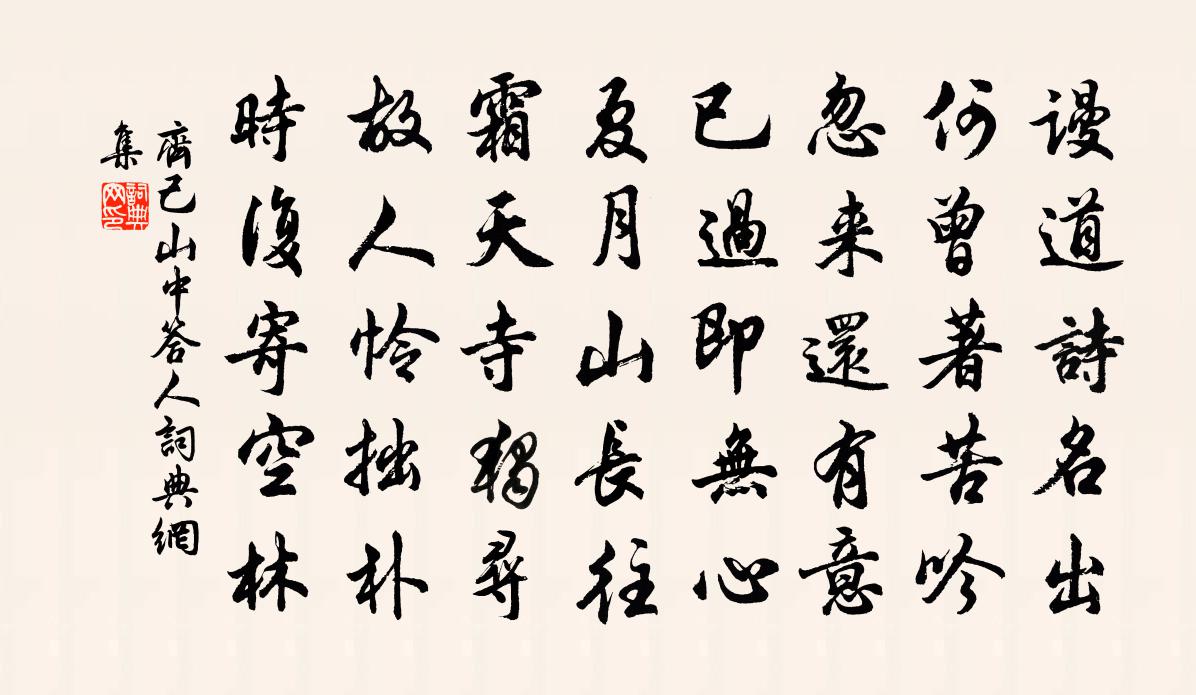 謾道詩名出
何曾著苦吟
忽来還有意
已過即無心
夏月山長往
霜天寺獨尋
故人怜拙朴
時復寄空林
齊己山中答人詞典網
集
詞典网印